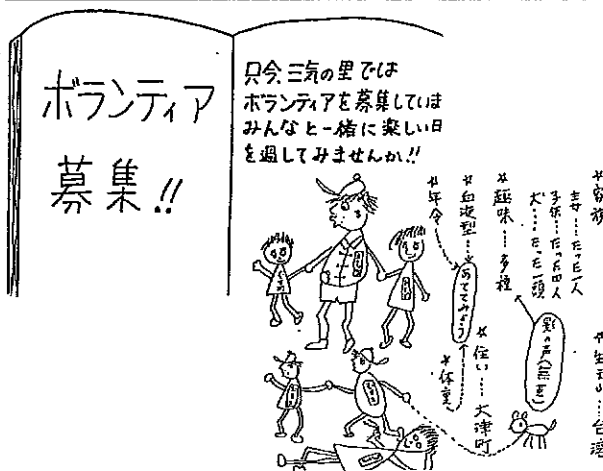 ボランティア
募集!!
只今 三気の里では
ボランティアを募集していま
みんなと一緒に楽しい日
を過してみませんか!!
*家族
妻……たった一人
子供……たった四人
犬……たった一頭
*趣味……多種
*血液型……
*年令
あててみよう
*体重
*住い……大津町